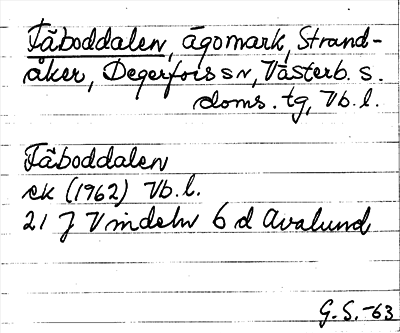 Fäboddalen, ägomark, Strand-
åker, Degerfors sn, Västerb. s.
doms. tg, Vb. l.
Fäboddalen
ek (1962) Vb. l.
21 J Vindeln 6 d Avalund
G. S. -63